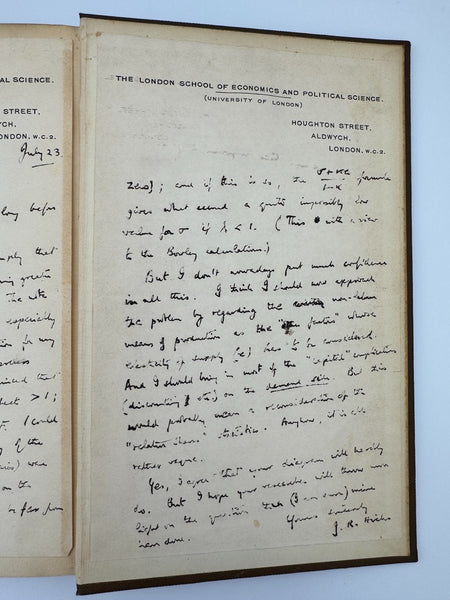 SCIENCE.
STREET,
ALDWYCH,
LONDON, W.C.2.
July 23
long before
simply that
greater
The
especially
for my
that
> 1;
I could
of the
were
on the
THE LONDON SCHOOL OF ECONOMICS AND POLITICAL SCIENCE.
(UNIVERSITY OF LONDON)
HOUGHTON STREET,
ALDWYCH,
LONDON, W.C.2.
zero); and if this is so, the formula
gives what seemed a quite impossibly low
value for σ if λ < 1. (This with a view
to the Bowley calculations.)
But I don't nowadays put much confidence
in all this. I think I should now approach
the problem by regarding the non-labour
means of production as the "factor" whose
elasticity of supply (e) has to be considered.
And I should bring in most of the "capital" complications
(discounting & etc) on the demand side. But this
would probably mean a reconsideration of the
"relative shares" statistics. Anyhow, it is all
rather vague.
Yes, I agree that your diagram will heavily
do. But I hope your researches will throw more
light on the question than (I am sure) mine
have done.
Yours sincerely
J. R. Hicks